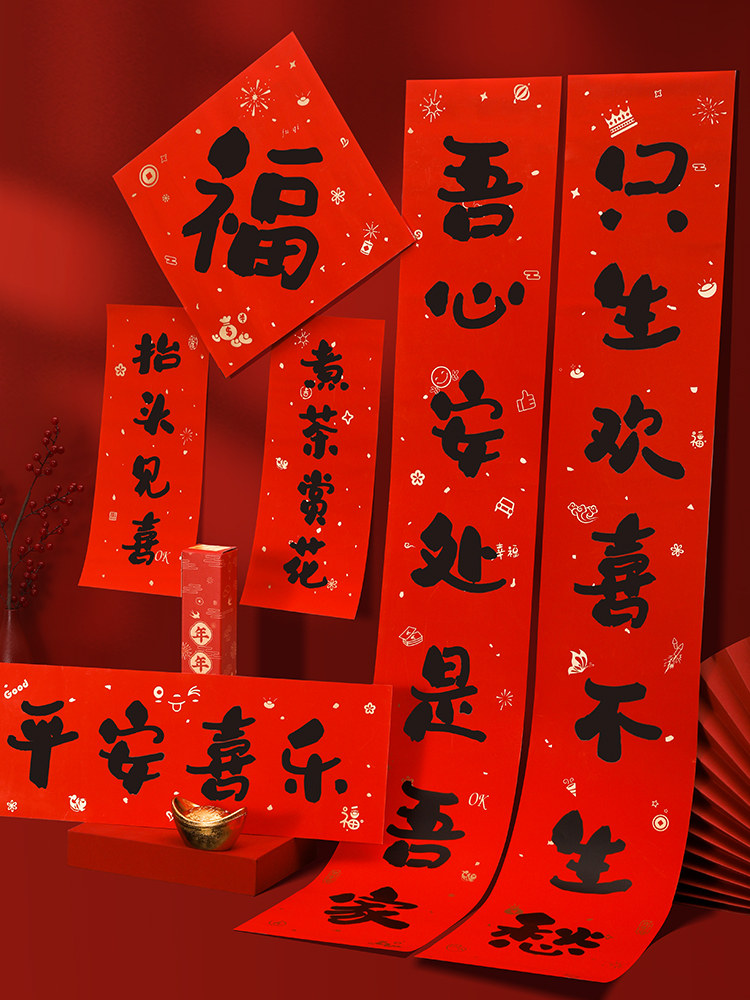 福
只生欢喜不生愁
吾心安处是吾家
抬头见喜
煮茶赏花
平安喜乐
年年
Good
OK
OK
OK
幸福
福
福